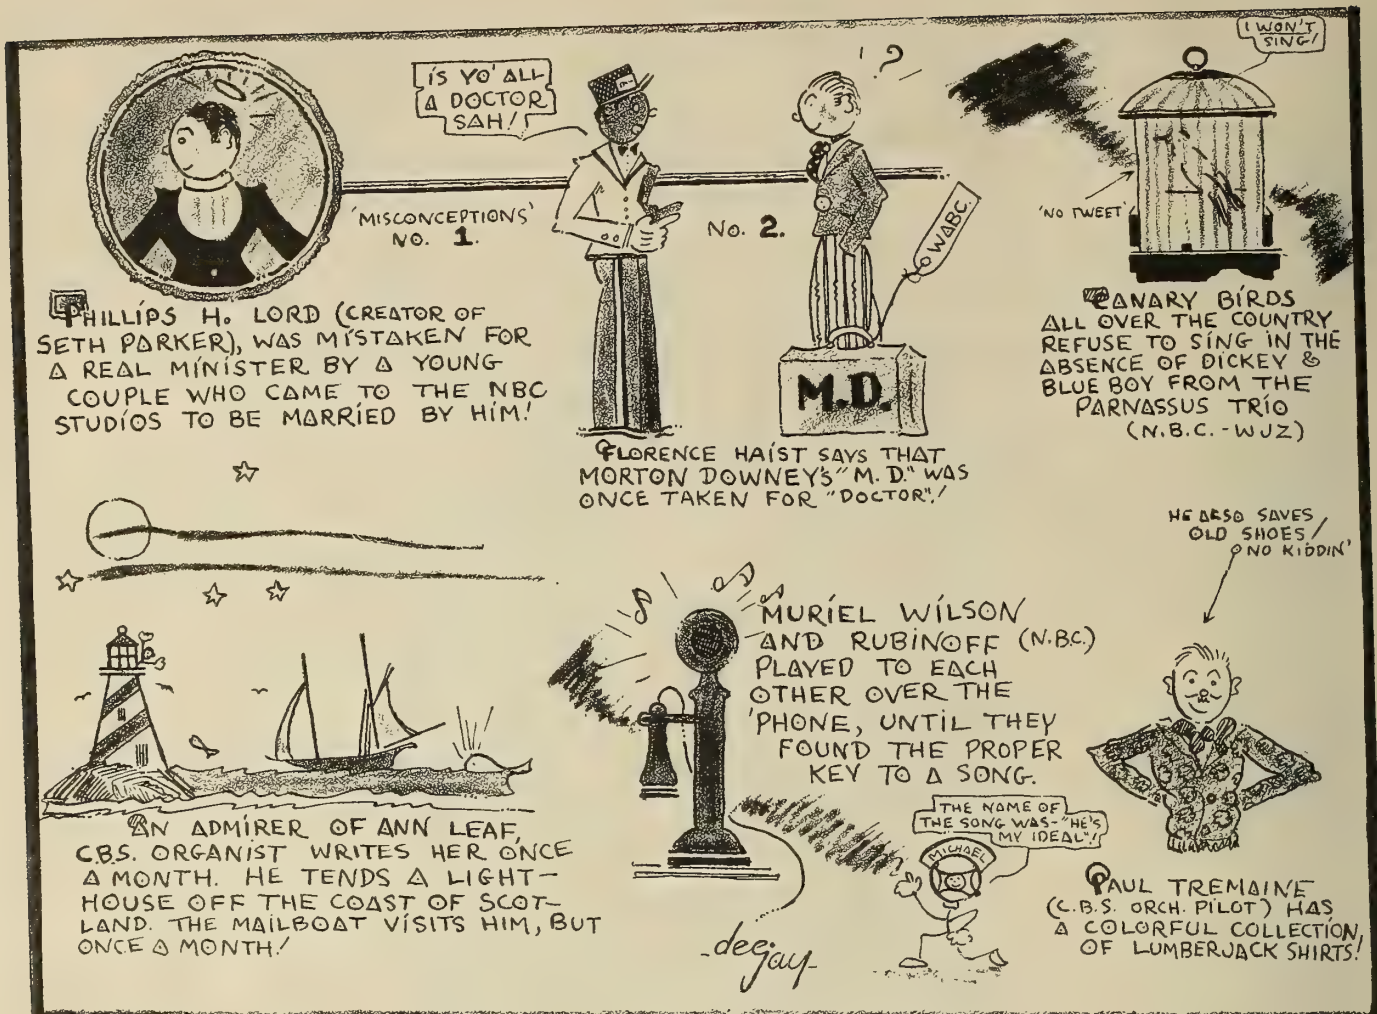 'MISCONCEPTIONS'
NO. 1.
PHILLIPS H. LORD (CREATOR OF
SETH PARKER), WAS MISTAKEN FOR
A REAL MINISTER BY A YOUNG
COUPLE WHO CAME TO THE NBC
STUDIOS TO BE MARRIED BY HIM!
IS YO' ALL
A DOCTOR
SAH!
NO. 2.
?
WABC.
M.D.
FLORENCE HAIST SAYS THAT
MORTON DOWNEY'S "M.D." WAS
ONCE TAKEN FOR "DOCTOR"!
I WON'T
SING!
'NO TWEET'
CANARY BIRDS
ALL OVER THE COUNTRY
REFUSE TO SING IN THE
ABSENCE OF DICKEY &
BLUE BOY FROM THE
PARNASSUS TRIO
(N.B.C.-WJZ)
AN ADMIRER OF ANN LEAF,
C.B.S. ORGANIST WRITES HER ONCE
A MONTH. HE TENDS A LIGHT-
HOUSE OFF THE COAST OF SCOT-
LAND. THE MAILBOAT VISITS HIM, BUT
ONCE A MONTH!
MURIEL WILSON
AND RUBINOFF (N.B.C.)
PLAYED TO EACH
OTHER OVER THE
'PHONE, UNTIL THEY
FOUND THE PROPER
KEY TO A SONG.
THE NAME OF
THE SONG WAS-"HE'S
MY IDEAL"!
MICHAEL
-deejay-
HE ALSO SAVES
OLD SHOES!
NO KIDDIN'
PAUL TREMAINE
(C.B.S. ORCH. PILOT) HAS
A COLORFUL COLLECTION
OF LUMBERJACK SHIRTS!